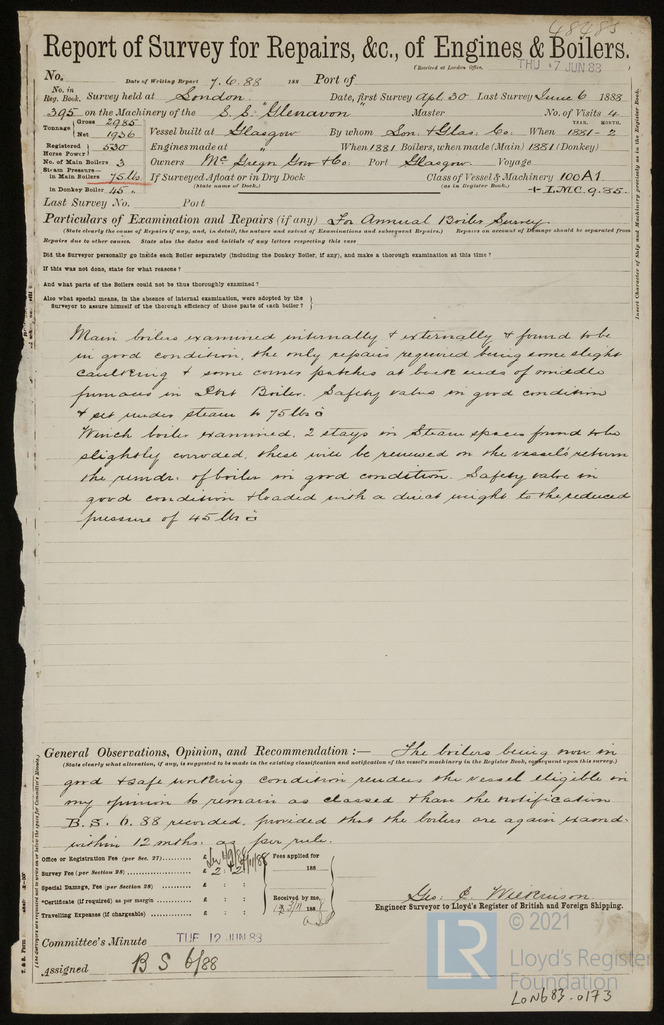 48485
Report of Survey for Repairs, &c., of Engines & Boilers.
(Received at London Office, THU 7 JUN 88
No. Date of Writing Report 7.6.88 188 Port of
No. in Reg. Book. Survey held at London Date, first Survey Apl. 30 Last Survey June 6 1888
395 on the Machinery of the S.S. "Glenavon" Master No. of Visits 4
Tonnage Gross 2985 Net 1936 Vessel built at Glasgow By whom Lon. & Glas. Co. When YEAR. MONTH. 1881-2
Registered Horse Power 530 Engines made at " When 1881 Boilers, when made (Main) 1881 (Donkey)
No. of Main Boilers 3 Owners McGregor Gow & Co. Port Glasgow Voyage
Steam Pressure— in Main Boilers 75 lbs If Surveyed Afloat or in Dry Dock Class of Vessel & Machinery 100A1
in Donkey Boiler 45 " (State name of Dock.) (as in Register Book.) + L.M.C. 9.85.
Last Survey No. Port
Particulars of Examination and Repairs (if any) For Annual Boiler Survey
(State clearly the cause of Repairs if any, and, in detail, the nature and extent of Examinations and subsequent Repairs.) Repairs on account of Damage should be separated from
Repairs due to other causes. State also the dates and initials of any letters respecting this case
Did the Surveyor personally go inside each Boiler separately (including the Donkey Boiler, if any), and make a thorough examination at this time?
If this was not done, state for what reasons?
And what parts of the Boilers could not be thus thoroughly examined?
Also what special means, in the absence of internal examination, were adopted by the
Surveyor to assure himself of the thorough efficiency of those parts of each boiler?
Main boilers examined internally & externally & found to be
in good condition, the only repairs required being some slight
caulking & some corner patches at back ends of middle
furnaces in Port Boiler. Safety valves in good condition
& set under steam to 75 lbs □
Winch boiler examined, 2 stays in steam space found to be
slightly corroded, these will be renewed on the vessel's return
the remdr. of boiler in good condition. Safety valve in
good condition & loaded with a direct weight to the reduced
pressure of 45 lbs □
General Observations, Opinion, and Recommendation:— The boilers being now in
(State clearly what alteration, if any, is suggested to be made in the existing classification and notification of the vessel's machinery in the Register Book, consequent upon this survey.)
good & safe working condition renders the vessel eligible in
my opinion to remain as classed & have the notification
B.S. 6.88 recorded, provided that the boilers are again examd.
within 12 mths. as per rule.
Office or Registration Fee (per Sec. 27) £ Fees applied for
Survey Fee (per Section 28) £ 2 : 2 188
Special Damage, Fee (per Section 28) £ : :
*Certificate (if required) as per margin £ : : Received by me,
Travelling Expenses (if chargeable) £ : : 188
Geo. C. Wilkinson
Engineer Surveyor to Lloyd's Register of British and Foreign Shipping.
Committee's Minute TUE 12 JUN 88
Assigned B S 6/88
Insert Character of Ship and Machinery precisely as in the Register Book.
© 2021
LR Lloyd's Register
Foundation
LON683-0173